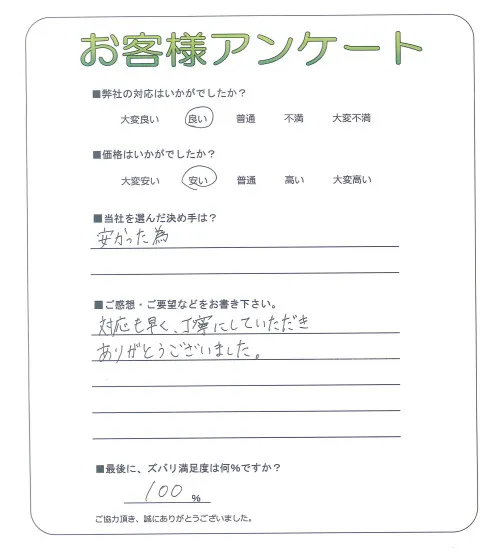 お客様アンケート
■弊社の対応はいかがでしたか？
大変良い 良い 普通 不満 大変不満
■価格はいかがでしたか？
大変安い 安い 普通 高い 大変高い
■当社を選んだ決め手は？
安かった為
■ご感想・ご要望などをお書き下さい。
対応も早く、丁寧にしていただき
ありがとうございました。
■最後に、ズバリ満足度は何%ですか？
100 %
ご協力頂き、誠にありがとうございました。